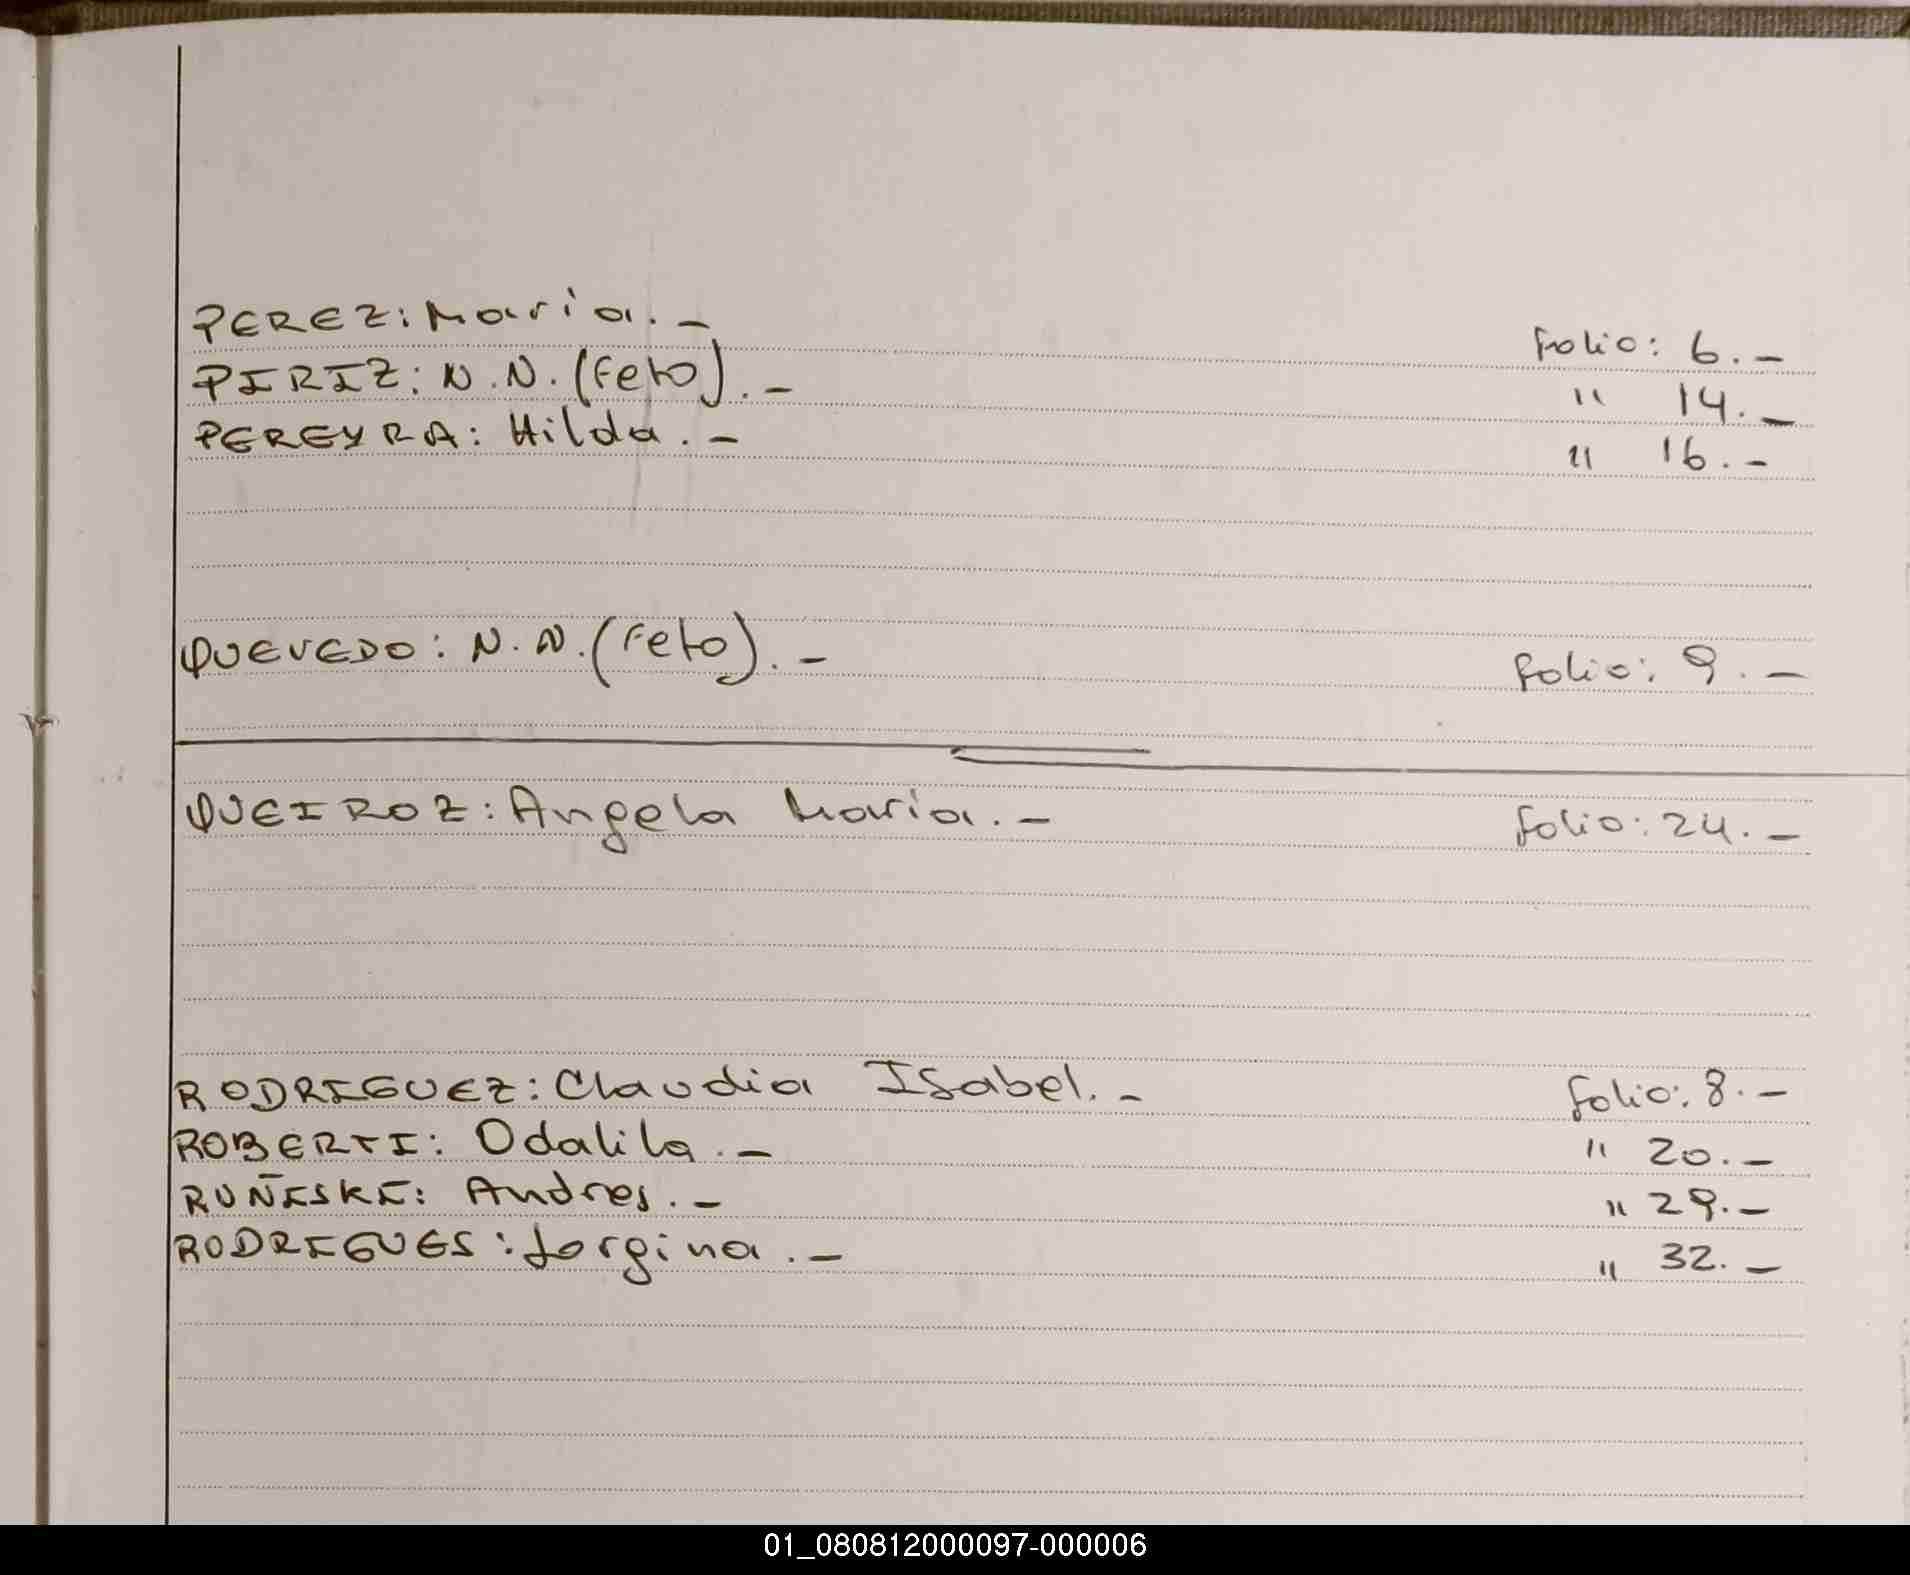 PEREZ: Maria.- folio: 6.-
PIRIZ: N.N. (Feto).- " 14.-
PEREYRA: Hilda.- " 16.-
QUEVEDO: N.N. (Feto).- folio: 9.-
QUEIROZ: Angela Maria.- folio: 24.-
RODRIGUEZ: Claudia Isabel.- folio: 8.-
ROBERTI: Odalila.- " 20.-
RUÑESKE: Andres.- " 29.-
RODRIGUES: Jorgina.- " 32.-
01_080812000097-000006